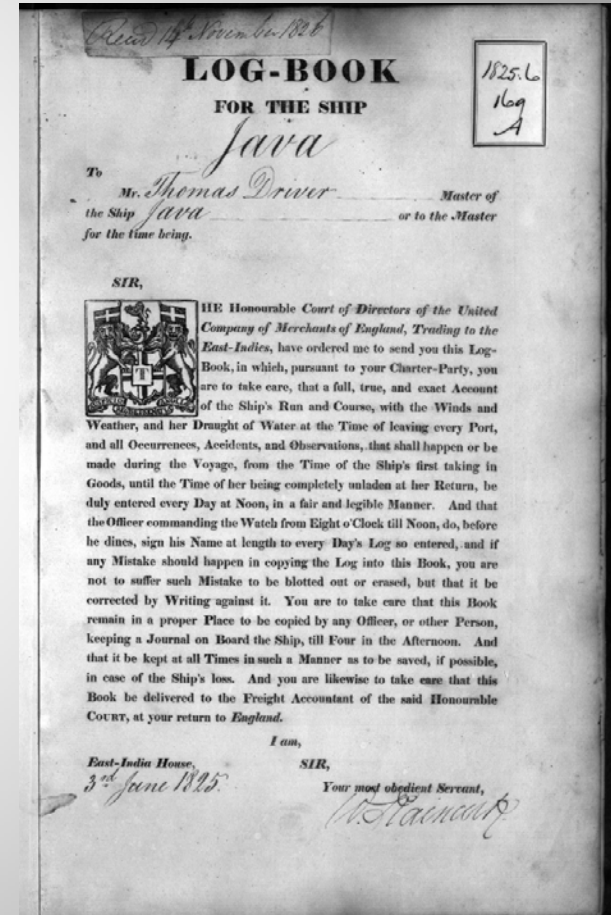 Recd 14th November 1826
LOG-BOOK
FOR THE SHIP
Java
1825.6
169
A
To
Mr. Thomas Driver Master of
the Ship Java or to the Master
for the time being.
SIR,
THE Honourable Court of Directors of the United
Company of Merchants of England, Trading to the
East-Indies, have ordered me to send you this Log-
Book, in which, pursuant to your Charter-Party, you
are to take care, that a full, true, and exact Account
of the Ship's Run and Course, with the Winds and
Weather, and her Draught of Water at the Time of leaving every Port,
and all Occurrences, Accidents, and Observations, that shall happen or be
made during the Voyage, from the Time of the Ship's first taking in
Goods, until the Time of her being completely unladen at her Return, be
duly entered every Day at Noon, in a fair and legible Manner. And that
the Officer commanding the Watch from Eight o'Clock till Noon, do, before
he dines, sign his Name at length to every Day's Log so entered, and if
any Mistake should happen in copying the Log into this Book, you are
not to suffer such Mistake to be blotted out or erased, but that it be
corrected by Writing against it. You are to take care that this Book
remain in a proper Place to be copied by any Officer, or other Person,
keeping a Journal on Board the Ship, till Four in the Afternoon. And
that it be kept at all Times in such a Manner as to be saved, if possible,
in case of the Ship's loss. And you are likewise to take care that this
Book be delivered to the Freight Accountant of the said Honourable
COURT, at your return to England.
I am,
East-India House, SIR,
3rd June 1825. Your most obedient Servant,